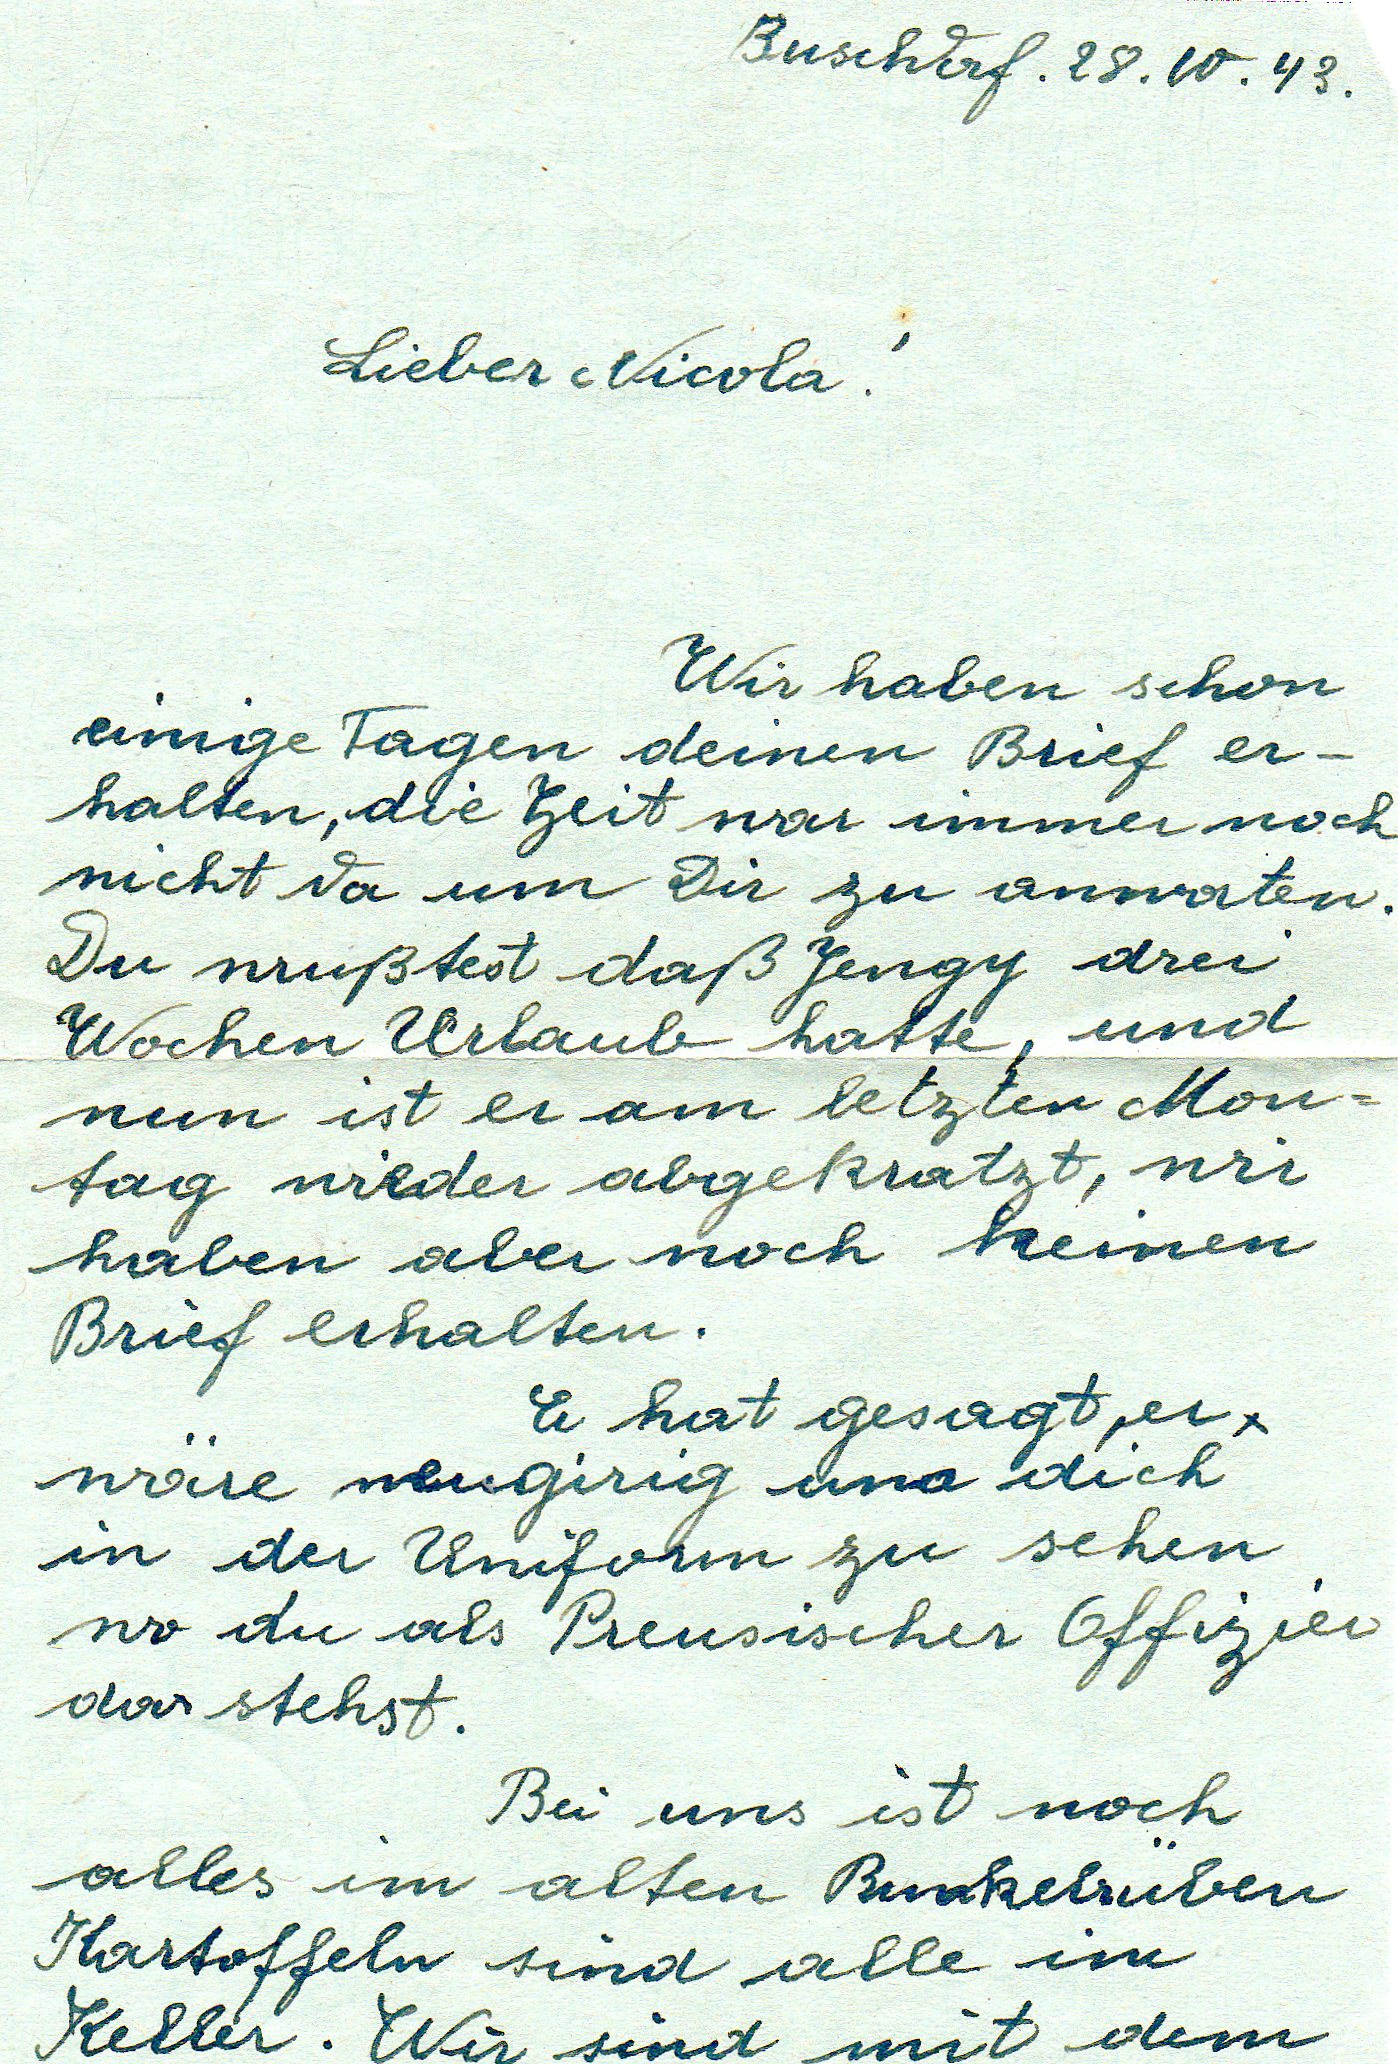 Buschdrf. 28. 10. 43.
Lieber Nicola!
Wir haben schon
einige Tagen deinen Brief er-
halten, die Zeit war immer noch
nicht da um Dir zu anworten.
Du wußtest daß Jengy drei
Wochen Urlaub hatte, und
nun ist er am letzten Mon=
tag wieder abgekratzt, wir
haben aber noch keinen
Brief erhalten.
Er hat gesagt, er
wäre neugirig und dich
in der Uniform zu sehen
wo du als Preusischer Offizier
dar stehst.
Bei uns ist noch
alles im alten Runkelrüben
Kartoffeln sind alle im
Keller. Wir sind mit dem